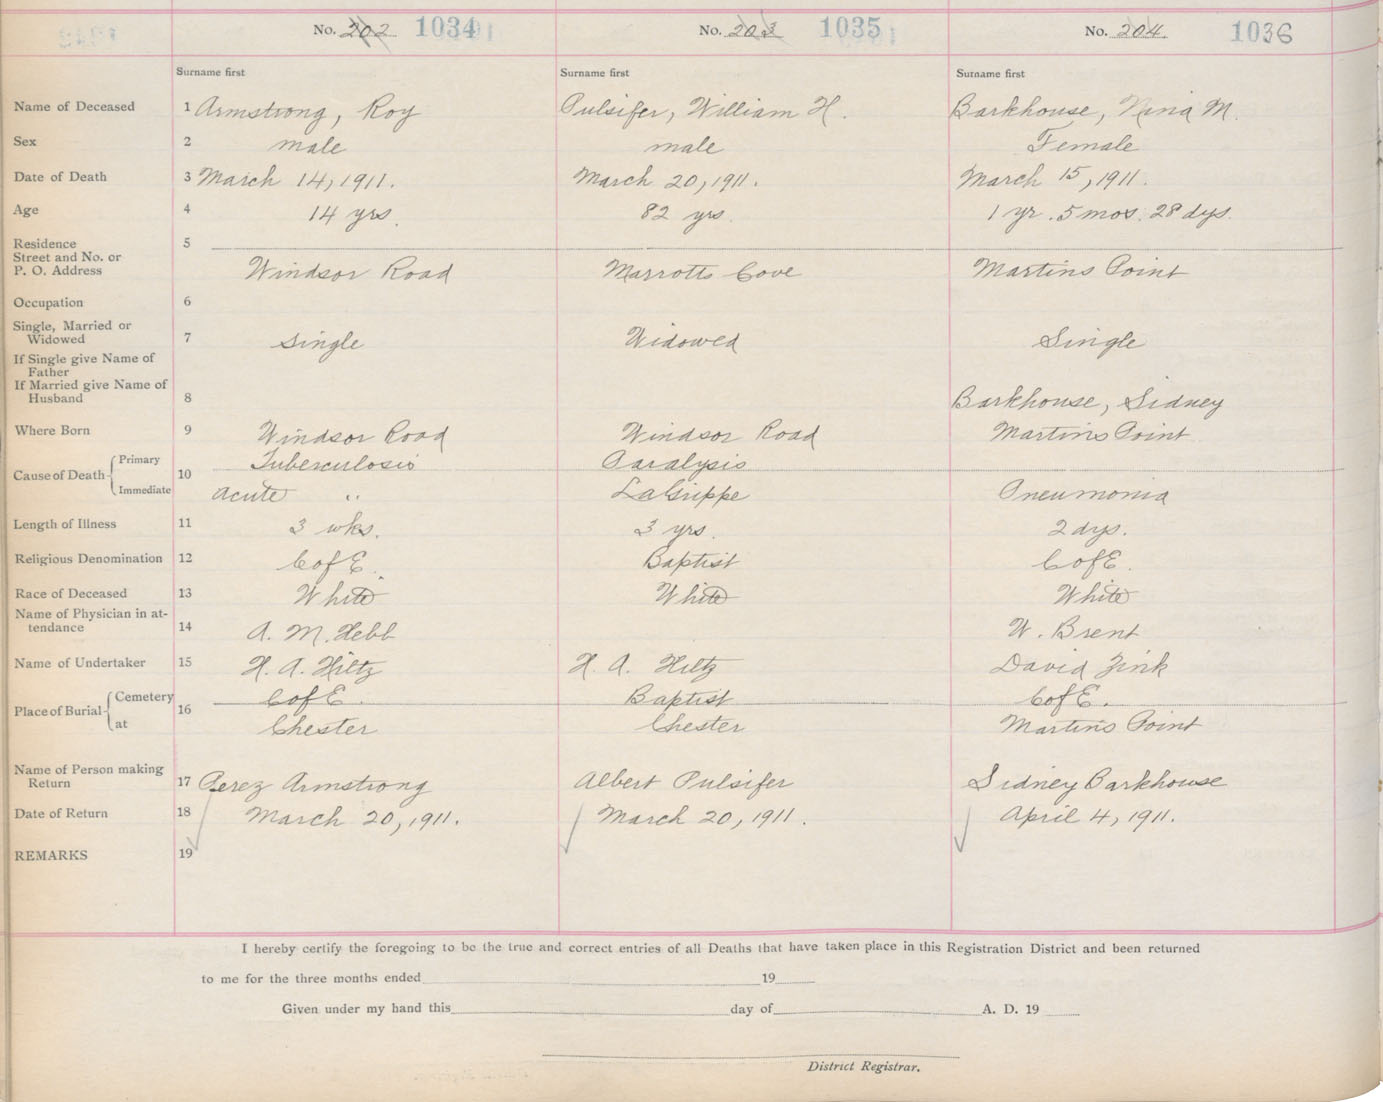 No. 202 1034 No. 203 1035 No. 204 1036
Surname first Surname first Surname first
Name of Deceased 1 Armstrong, Roy Pulsifer, William H. Barkhouse, Nina M.
Sex 2 male male Female
Date of Death 3 March 14, 1911. March 20, 1911. March 15, 1911.
Age 4 14 yrs. 82 yrs. 1 yr. 5 mos. 28 dys.
Residence 5
Street and No. or
P. O. Address Windsor Road Marrotts Cove Martins Point
Occupation 6
Single, Married or
Widowed 7 Single Widowed Single
If Single give Name of
Father
If Married give Name of
Husband 8 Barkhouse, Sidney
Where Born 9 Windsor Road Windsor Road Martins Point
Primary Tuberculosis Paralysis
Cause of Death 10
Immediate acute " LaGrippe Pneumonia
Length of Illness 11 3 wks. 3 yrs. 2 dys.
Religious Denomination 12 C of E. Baptist C of E.
Race of Deceased 13 White White White
Name of Physician in at-
tendance 14 A. M. Hebb W. Brent
Name of Undertaker 15 H. A. Hiltz H. A. Hiltz David Zink
Cemetery C of E. Baptist C of E.
Place of Burial 16
at Chester Chester Martins Point
Name of Person making
Return 17 Perez Armstrong Albert Pulsifer Sidney Barkhouse
Date of Return 18 March 20, 1911. March 20, 1911. April 4, 1911.
REMARKS 19
I hereby certify the foregoing to be the true and correct entries of all Deaths that have taken place in this Registration District and been returned
to me for the three months ended 19
Given under my hand this day of A. D. 19
District Registrar.